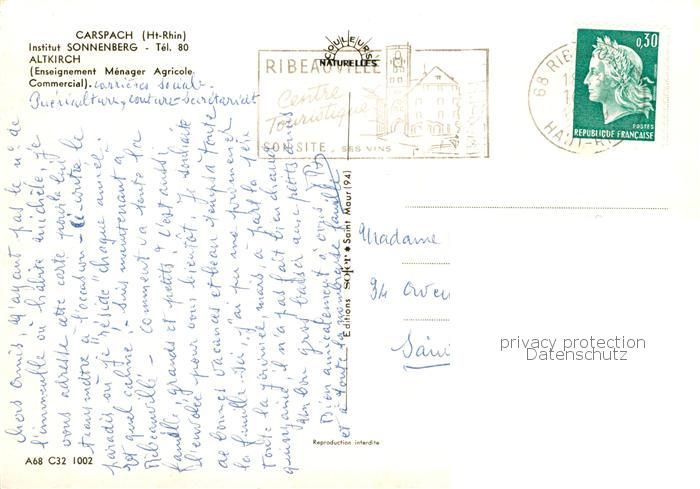 CARSPACH (Ht-Rhin)
Institut SONNENBERG - Tél. 80
ALTKIRCH
(Enseignement Ménager Agricole
Commercial). carrières sociales
Puériculture, couture - secrétariat
COULEURS
NATURELLES
RIBEAUVILLE
Centre
Touristique
SON SITE, SES VINS
68 RIBE
HAUT-RH
0,30
POSTES
REPUBLIQUE FRANÇAISE
chers amis, n'ayant pas le n° de
l'immeuble où habite Michèle, je
vous adresse cette carte pour la lui
transmettre à l'occasion - ci contre le
paradis où je "réside" chaque année -
et quel calme - suis maintenant à
Ribeauvillé - comment va toute la
famille, grands et petits, c'est aussi
pour vous bientôt, je souhaite
de bonnes vacances et beau temps à toute
la famille - ici, j'ai pu me promener
toute la journée mais, à part la
il n'a pas fait bien chaud
un gros baiser aux petits
Bien amicalement à vous
et à toute la nombreuse famille
Editions SOFER ★ Saint Maur (94)
Madame
94
Sain
privacy protection
Datenschutz
Reproduction interdite
A68 C32 1002